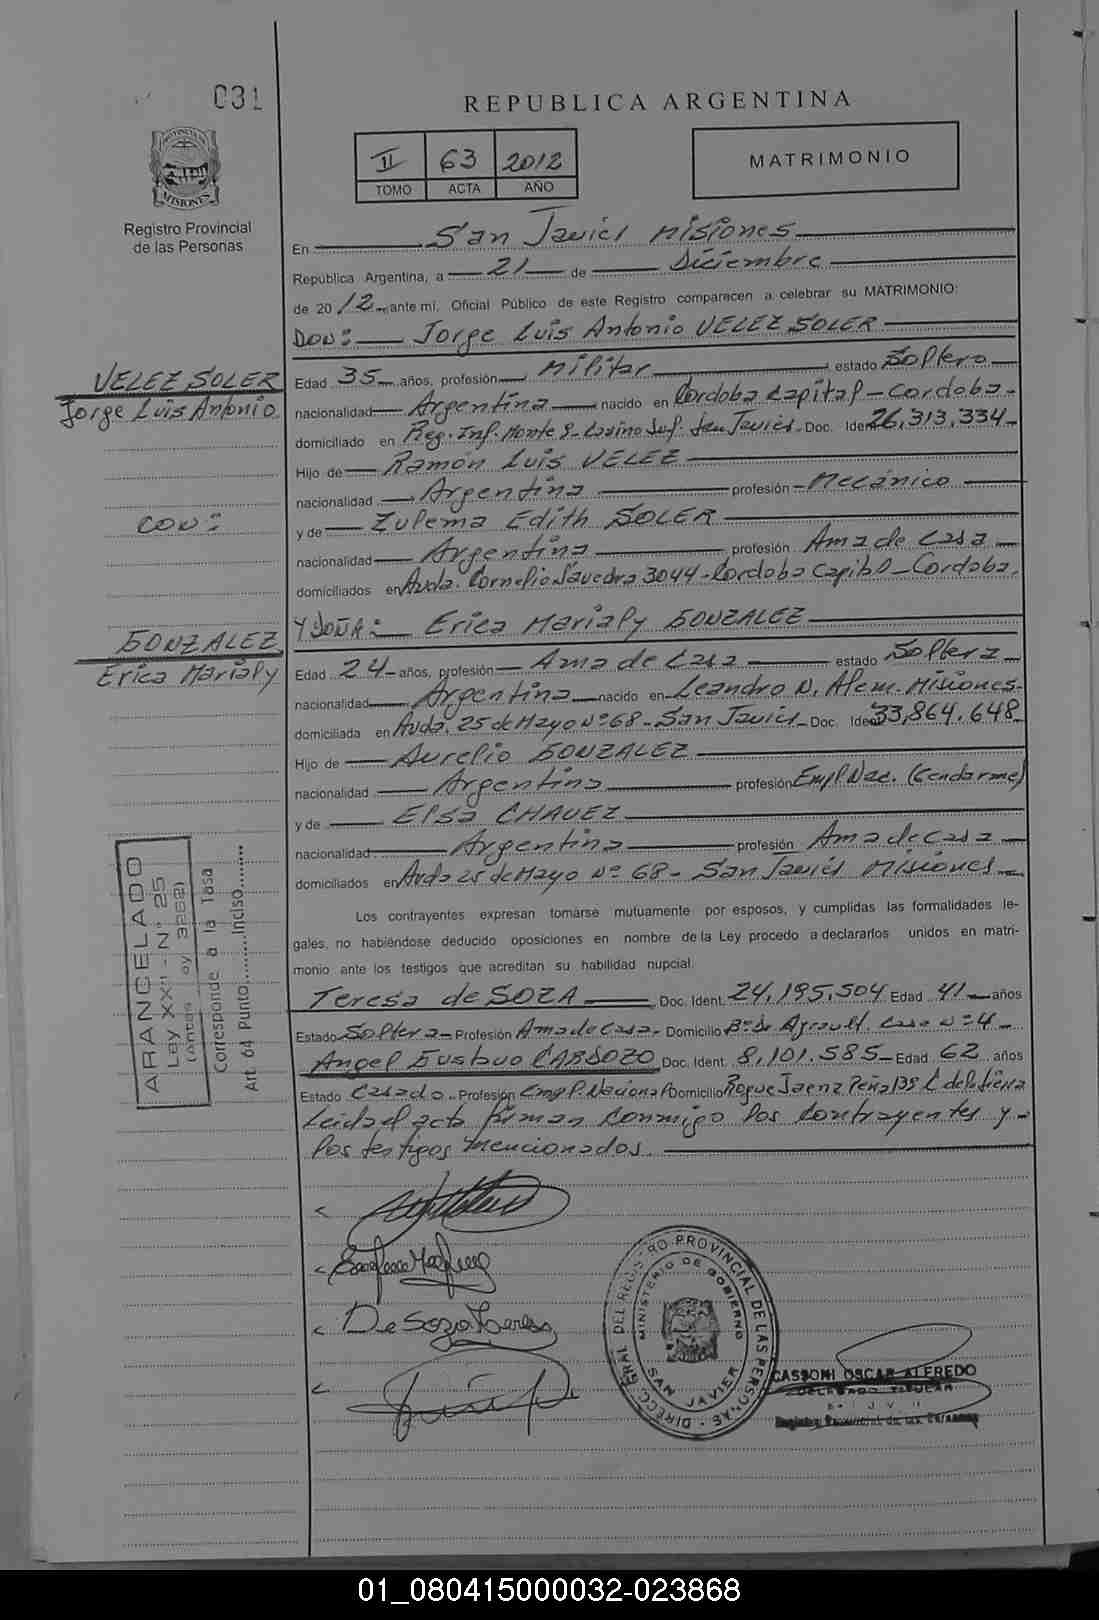 031
REPUBLICA ARGENTINA
II 63 2012
TOMO ACTA AÑO
MATRIMONIO
PROVINCIA DE
MISIONES
Registro Provincial
de las Personas
En San Javier Misiones
República Argentina, a 21 de Diciembre
de 2012 ante mí, Oficial Público de este Registro comparecen a celebrar su MATRIMONIO:
DON: Jorge Luis Antonio VELEZ SOLER
VELEZ SOLER
Jorge Luis Antonio
Edad 35 años, profesión Militar estado Soltero
nacionalidad Argentina nacido en Cordoba Capital - Cordoba-
domiciliado en Reg. Inf. Monte 9 - Casino Suf. San Javier - Doc. Iden 26,313,334-
Hijo de Ramón Luis VELEZ
nacionalidad Argentina profesión Mecánico
CON:
y de Zulema Edith SOLER
nacionalidad Argentina profesión Ama de Casa
domiciliados en Avda. Cornelio Saavedra 3044 - Cordoba Capital - Cordoba.
Y DOÑA: Erica Marialy GONZALEZ
GONZALEZ
Erica Marialy
Edad 24 años, profesión Ama de Casa estado Soltera
nacionalidad Argentina nacido en Leandro N. Alem. Misiones-
domiciliada en Avda. 25 de Mayo Nº 68 - San Javier - Doc. Iden 33,864.648
Hijo de Aurelio GONZALEZ
nacionalidad Argentina profesión Empl Nac. (Gendarme)
y de Elsa CHAVEZ
nacionalidad Argentina profesión Ama de Casa
domiciliados en Avda 25 de Mayo Nº 68 - San Javier Misiones
Los contrayentes expresan tomarse mutuamente por esposos, y cumplidas las formalidades le-
gales, no habiéndose deducido oposiciones en nombre de la Ley procedo a declararlos unidos en matri-
monio ante los testigos que acreditan su habilidad nupcial.
Teresa de SOZA Doc. Ident. 24,195,504 Edad 41 años
Estado Soltera - Profesión Ama de Casa - Domicilio Bº Sr Agrault Casa Nº 4
Angel CARDOZO Doc. Ident. 8,101.585 - Edad 62 años
Estado Casado - Profesión Empl. Nacional Domicilio Roque Saenz Peña 138
Leida el acta firman conmigo los contrayentes y
los testigos mencionados.
ARANCELADO
Ley XXII - Nº 25
(Antes Ley 3262)
Corresponde a la Tasa
Art. 64 Punto Inciso
De Soza Teresa
DIRECC. GRAL. DEL REGISTRO PROVINCIAL DE LAS PERSONAS
MINISTERIO DE GOBIERNO
SAN JAVIER
CASSONI OSCAR ALFREDO
DELEGADO TITULAR
Registro Provincial de las Personas
01_080415000032-023868